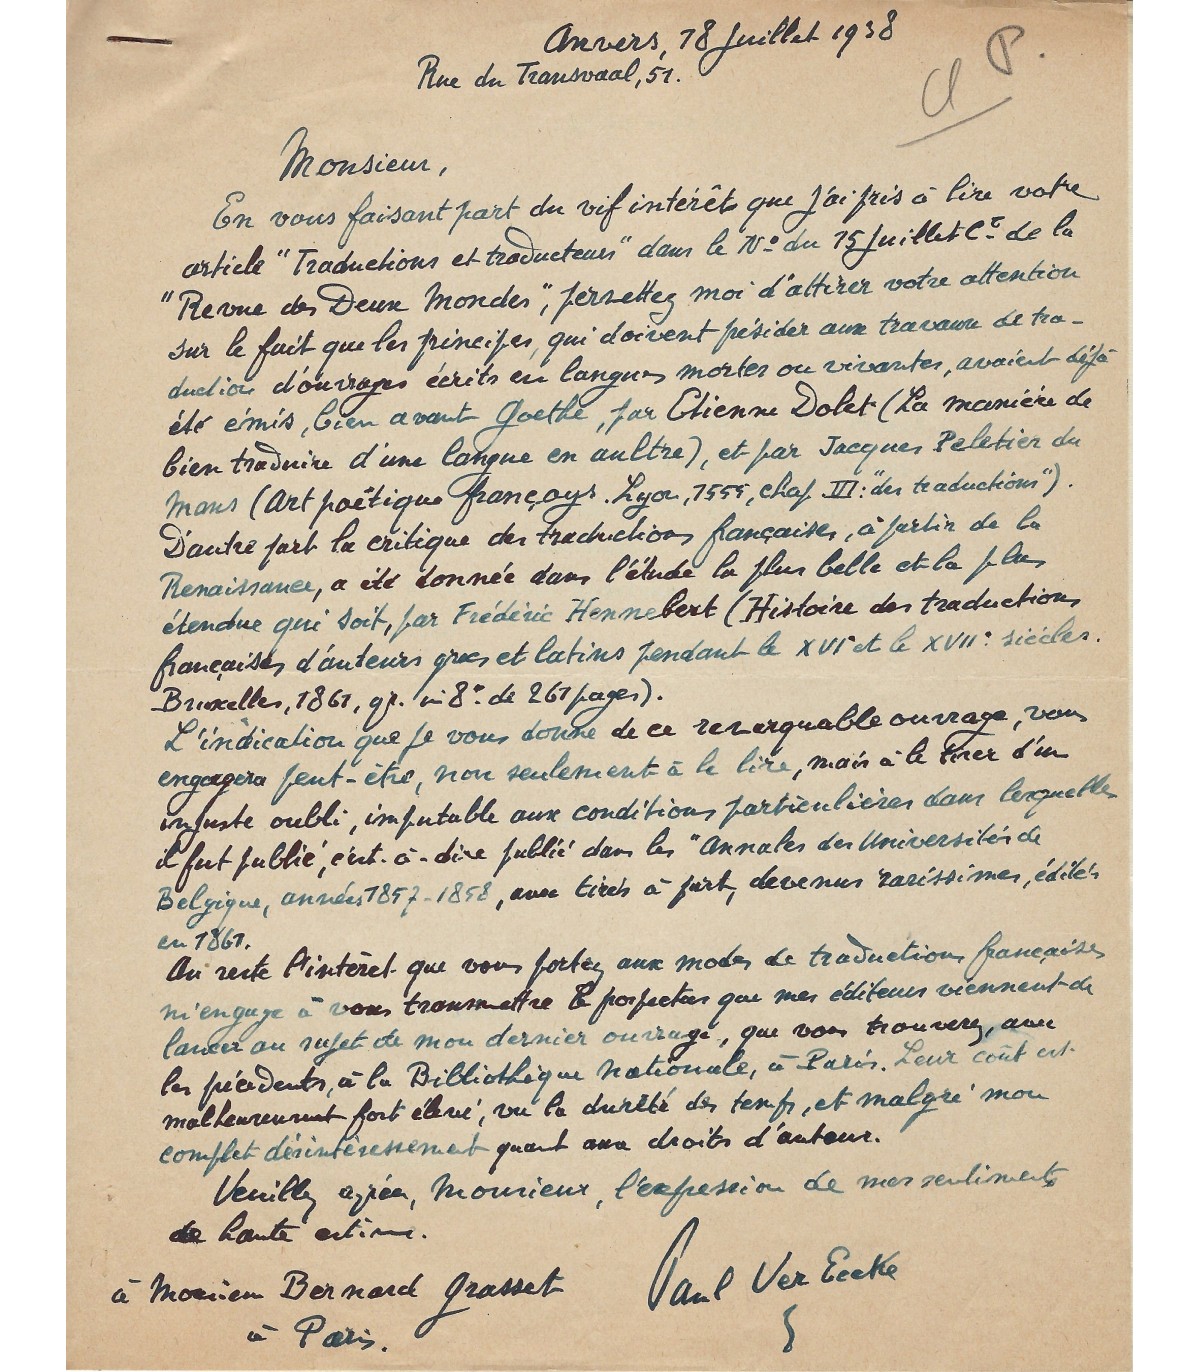 Anvers, 18 juillet 1938
Rue du Transvaal, 51.
P.
Monsieur,
En vous faisant part du vif intérêt que j'ai pris à lire votre
article "Traductions et traducteurs" dans le No du 15 juillet Ct de la
"Revue des Deux Mondes", permettez moi d'attirer votre attention
sur le fait que les principes, qui doivent présider aux travaux de tra-
duction d'ouvrages écrits en langues mortes ou vivantes, avaient déjà
été émis, bien avant Goethe, par Etienne Dolet (La manière de
bien traduire d'une langue en aultre), et par Jacques Peletier du
Mans (Art poëtique françoys. Lyon, 1555, chap. III: "des traductions").
D'autre part la critique des traductions françaises, à partir de la
Renaissance, a été donnée dans l'étude la plus belle et la plus
étendue qui soit, par Frédéric Hennebert (Histoire des traductions
françaises d'auteurs grecs et latins pendant le XVIe et le XVIIe siècles.
Bruxelles, 1861, gr. in 8o de 261 pages).
L'indication que je vous donne de ce remarquable ouvrage, vous
engagera peut-être, non seulement à le lire, mais à le tirer d'un
injuste oubli, imputable aux conditions particulières dans lesquelles
il fut publié, c'est-à-dire publié dans les "Annales des Universités de
Belgique, années 1857-1858, avec tirés à part, devenus rarissimes, édités
en 1861.
Au reste l'intérêt que vous portez aux modes de traductions françaises
m'engage à vous transmettre le prospectus que mes éditeurs viennent de
lancer au sujet de mon dernier ouvrage, que vous trouverez, avec
les précédents, à la Bibliothèque Nationale, à Paris. Leur coût est
malheureusement fort élevé, vu la dureté des temps, et malgré mon
complet désintéressement quant aux droits d'auteur.
Veuillez agréer, Monsieur, l'expression de mes sentiments
de haute estime.
Paul Ver Eecke
à Monsieur Bernard Grasset
à Paris.